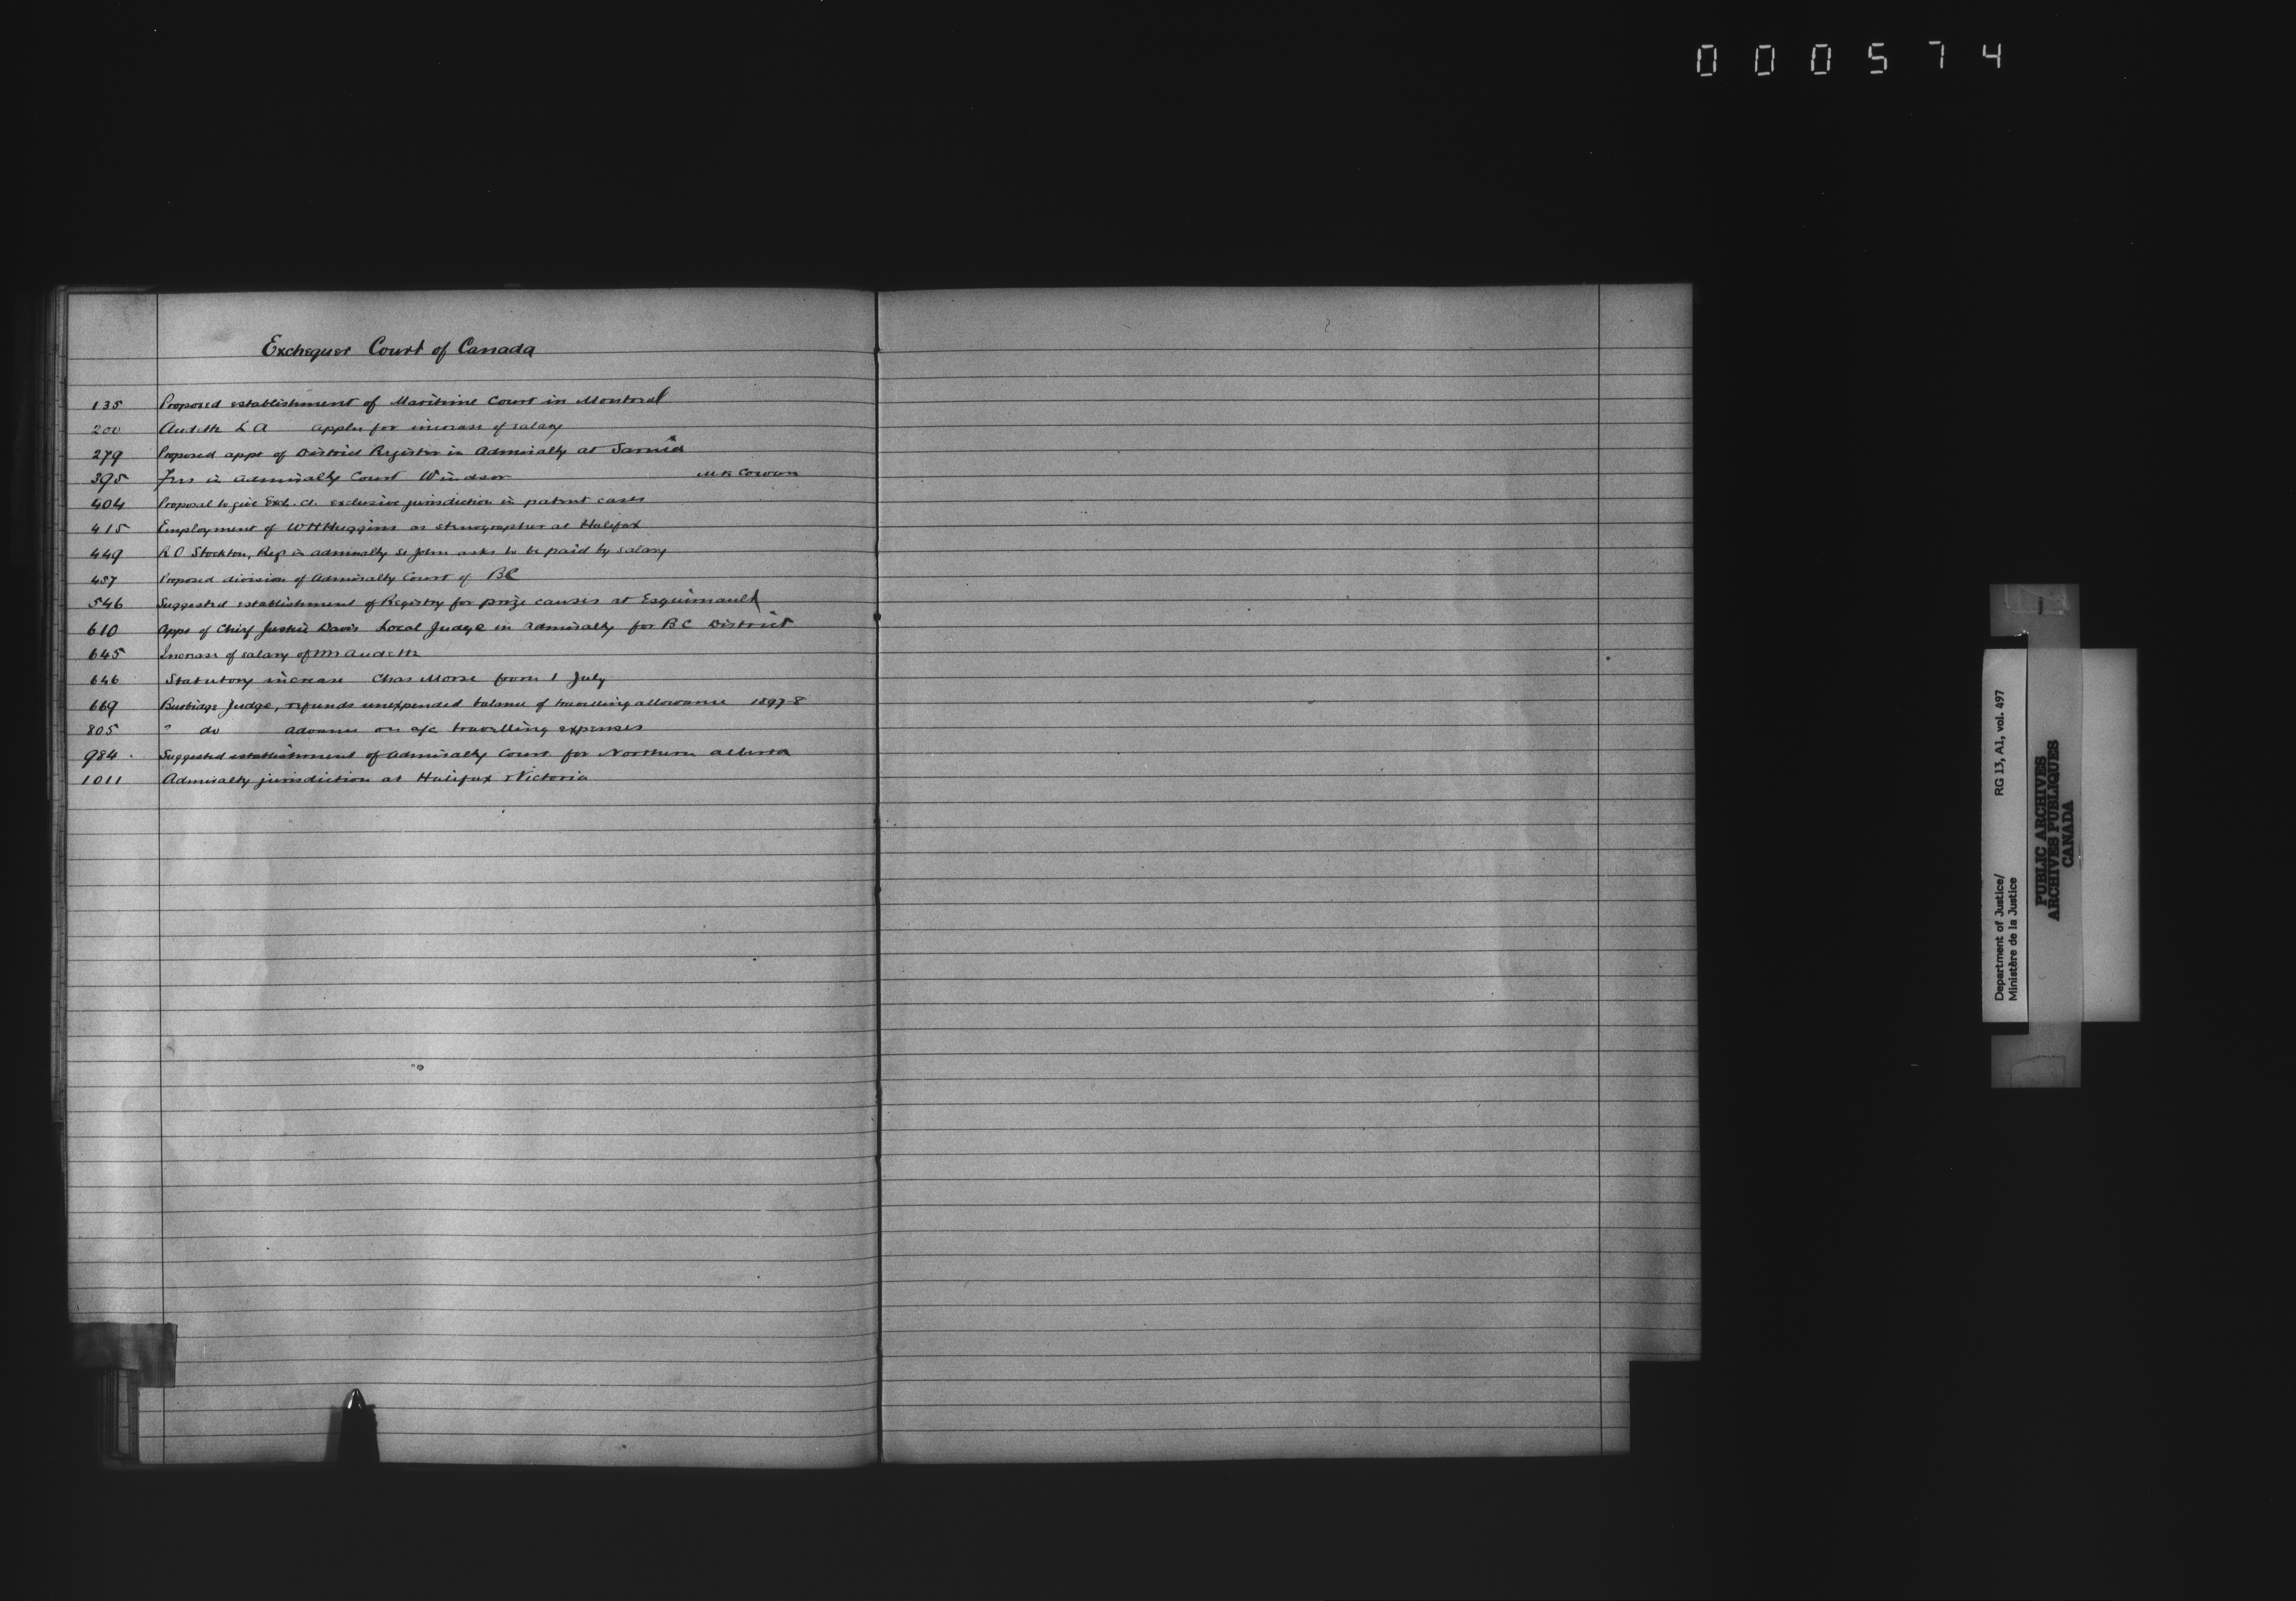 000574
Exchequer Court of Canada
135 Proposed establishment of Maritime Court in Montreal
200 Audette L A applies for increase of salary
279 Proposed appt of District Registrar in Admiralty at Sarnia
395 Fees in Admiralty Court Windsor McK Cowan
404 Proposal to give Exch. Ct. exclusive jurisdiction in patent cases
415 Employment of W H Huggins as stenographer at Halifax
449 R O Stockton, Reg in admiralty St John asks to be paid by salary
457 Proposed division of Admiralty Court of BC
546 Suggested establishment of Registry for prize causes at Esquimault
610 Appt of Chief Justice Davie Local Judge in admiralty for BC District
645 Increase of salary of Mr Audette
646 Statutory increase Chas Morse from 1 July
669 Burbidge Judge, refunds unexpended balance of travelling allowance 1897-8
805 " do advance on a/c travelling expenses
984 Suggested establishment of Admiralty Court for Northern Alberta
1011 Admiralty jurisdiction at Halifax & Victoria
Department of Justice/ RG 13, A1, vol. 497
Ministère de la Justice
PUBLIC ARCHIVES
ARCHIVES PUBLIQUES
CANADA